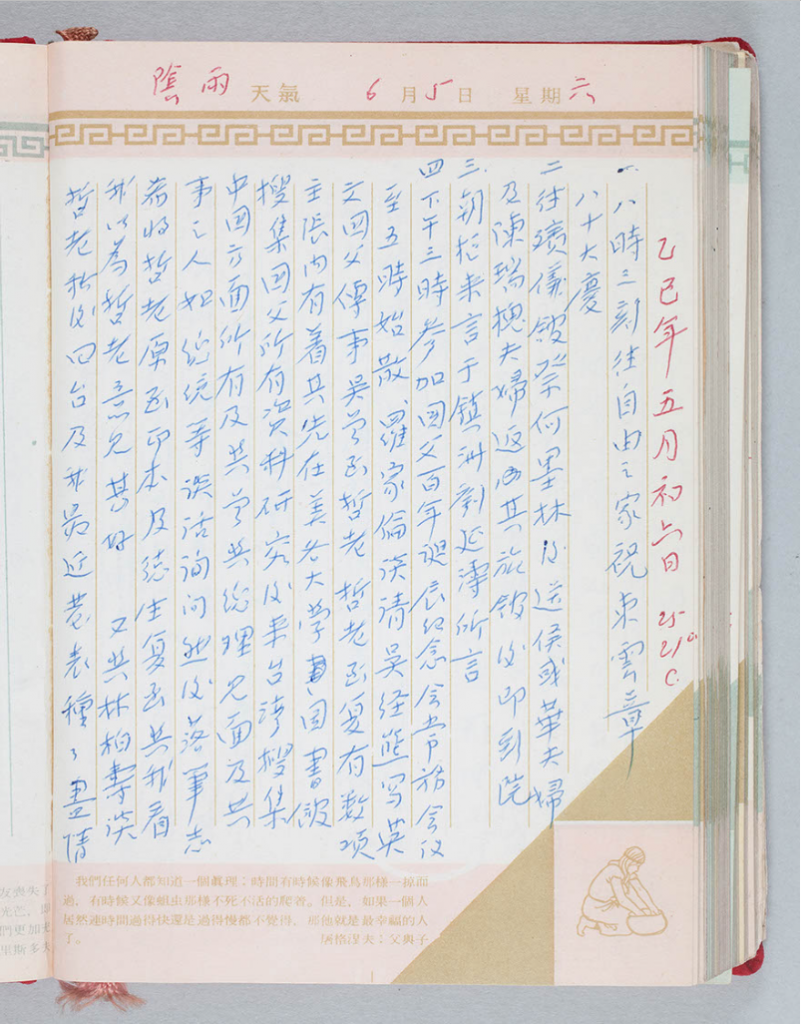 陰雨 天氣 6月5日 星期六
乙巳年五月初六日 25-21°C
一、八時三刻往自由之家祝東雲章
八十大慶
二、往殯儀館祭何墨林後送侯或華夫婦
及陳瑞槐夫婦返回其旅館後即到院
三、朔松來言于鎮洲劉延濤所言
四、下午三時參加國父百年誕辰紀念會常務會議
至五時始散、羅家倫談請吳經熊写英
文國父傳事吳曾函哲老 哲老函復有数項
主張內有着其先在美各大學圖書館
搜集國父所有資料研究後來台湾搜集
中国方面所有及其曾與總理見面及共
事之人如 等談話詢問然後落筆志
希將哲老原函印本及德生复函與我看
我以為哲老意見甚好 又與林柏壽談
哲老私後回台及我最近發表種々 情
我們任何人都知道一個眞理：時間有時候像飛鳥那樣一掠而
過，有時候又像蛆虫那樣不死不活的爬着。但是，如果一個人
居然連時間過得快還是過得慢都不覺得，那他就是最幸福的人
了。 屠格涅夫：父與子